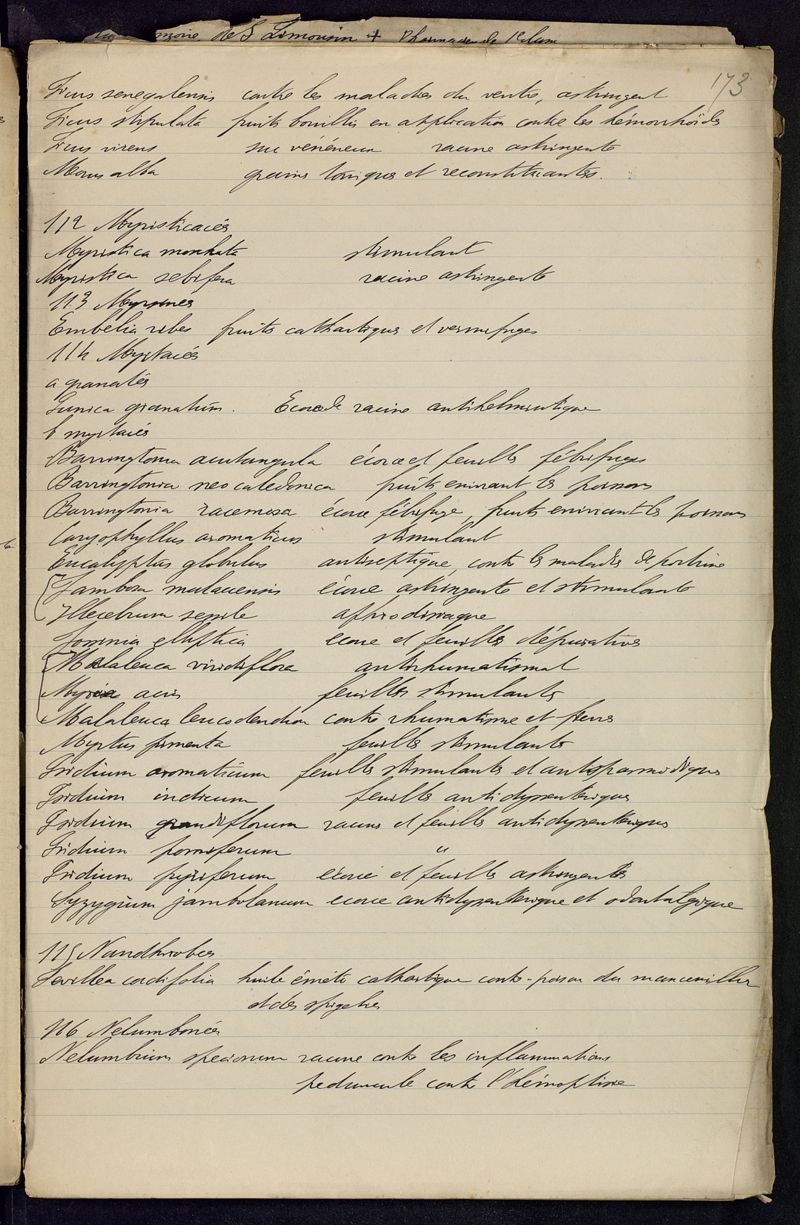 de S Limousin +
173
Ficus senegalensis contre les maladies du ventre, astringent
Ficus stipulata fruits bouillis en application contre les hémorrhoïdes
Ficus virens suc vénéneux racine astringente
Morus alba graines toniques et reconstituantes.
112 Myristicacés
Myristica moschata stimulant
Myristica sebifera racine astringente
113 Myrsinés
Embelia ribes fruits cathartiques et vermifuges
114 Myrtacés
a granatés
Punica granatum. Ecorce de racine antihelmintique
b myrtacés
Barringtonia acutangula écorce et feuilles fébrifuges
Barringtonia neocaledonica fruits enivrant les poissons
Barringtonia racemosa écorce fébrifuge, fruits enivrant les poissons
Caryophyllus aromaticus stimulant
Eucalyptus globulus antiseptique, contre les maladies de poitrine
Jambosa malaccensis écorce astringente et stimulante
Illecebrum sessile aphrodisiaque
Fossinia elliptica écorce et feuilles dépuratives
Malaleuca viridiflora antirhumatismal
Myrcia acris feuilles stimulantes
Malaleuca leucodendron contre rhumatisme et fievre
Myrtus pimenta feuilles stimulantes
Psidium aromaticum feuilles stimulantes et antispasmodiques
Psidium indicum feuilles antidysentériques
Psidium grandiflorum racines et feuilles antidysentériques
Psidium pomiferum "
Psidium pyriferum écorce et feuilles astringentes
Syzygium jambolanum écorce antidysentérique et odontalgique
115 Nandhirobées
Fevillea cordifolia huile éméto cathartique contre-poison du mancenillier
et des spigelies
116 Nelumbonées
Nelumbium speciosum racine contre les inflammations
pedoncule contre l'hémoptisie